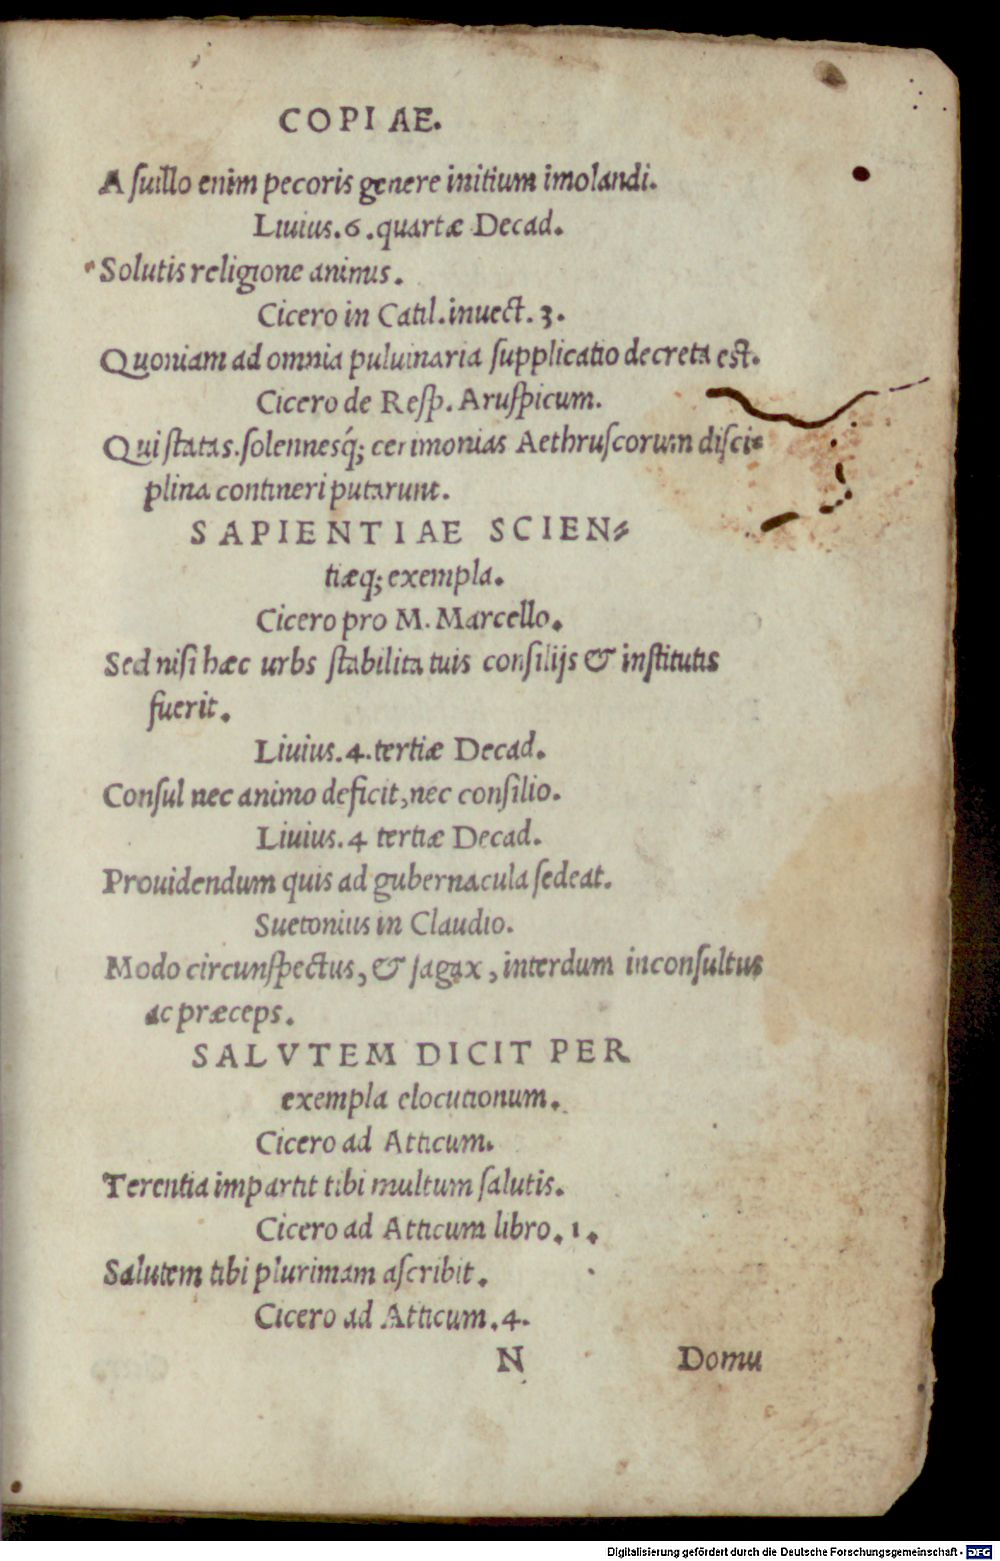 COPIAE.
A ſuillo enim pecoris genere initium imolandi.
Liuius.6.quartæ Decad.
Solutis religione animus.
Cicero in Catil.inuect.3.
Quoniam ad omnia puluinaria ſupplicatio decreta eſt.
Cicero de Reſp. Aruſpicum.
Qui ſtatas.ſolennesq́; cerimonias Aethruſcorum diſci-
plina contineri putarunt.
SAPIENTIAE SCIEN-
tiæq; exempla.
Cicero pro M. Marcello.
Sed niſi hæc urbs ſtabilita tuis conſilijs & inſtitutis
fuerit.
Liuius.4.tertiæ Decad.
Conſul nec animo deficit, nec conſilio.
Liuius.4 tertiæ Decad.
Prouidendum quis ad gubernacula ſedeat.
Suetonius in Claudio.
Modo circunſpectus, & ſagax, interdum inconſultus
ac præceps.
SALVTEM DICIT PER
exempla elocutionum.
Cicero ad Atticum.
Terentia impartit tibi multum ſalutis.
Cicero ad Atticum libro.1.
Salutem tibi plurimam aſcribit.
Cicero ad Atticum.4.
N Domu
Digitalisierung gefördert durch die Deutsche Forschungsgemeinschaft - DFG